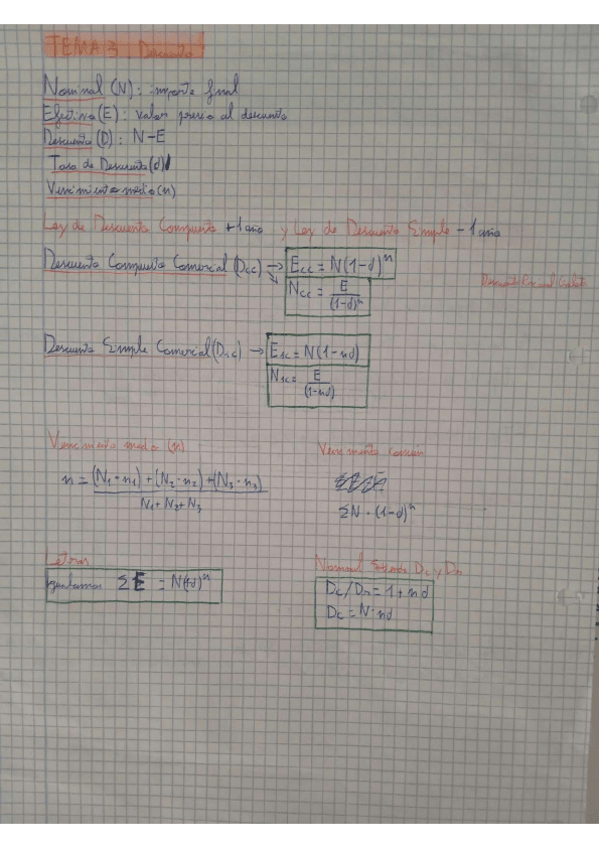 TEMA 3 Descuento
Nominal (N): importe final
Efectivo (E): valor previo al descuento
Descuento (D): N-E
Tasa de Descuento (d)
Vencimiento medio (n)
Ley de Descuento Compuesto +1 año y Ley de Descuento Simple -1 año
Descuento Compuesto Comercial (Dcc) → Ecc = N(1-d)^n
Ncc = E/(1-d)^n
Descuento Racional
Descuento Simple Comercial (Dsc) → E1c = N(1-nd)
N1c = E/(1-nd)
Vencimiento medio (n)
n = (N1·n1)+(N2·n2)+(N3·n3)
N1+N2+N3
Vencimiento común
ΣN·(1-d)^n
Letras
ΣE = N(1-d)^n
Nominal Dc y Dr
Dc/Dr = 1+nd
Dc = N·nd